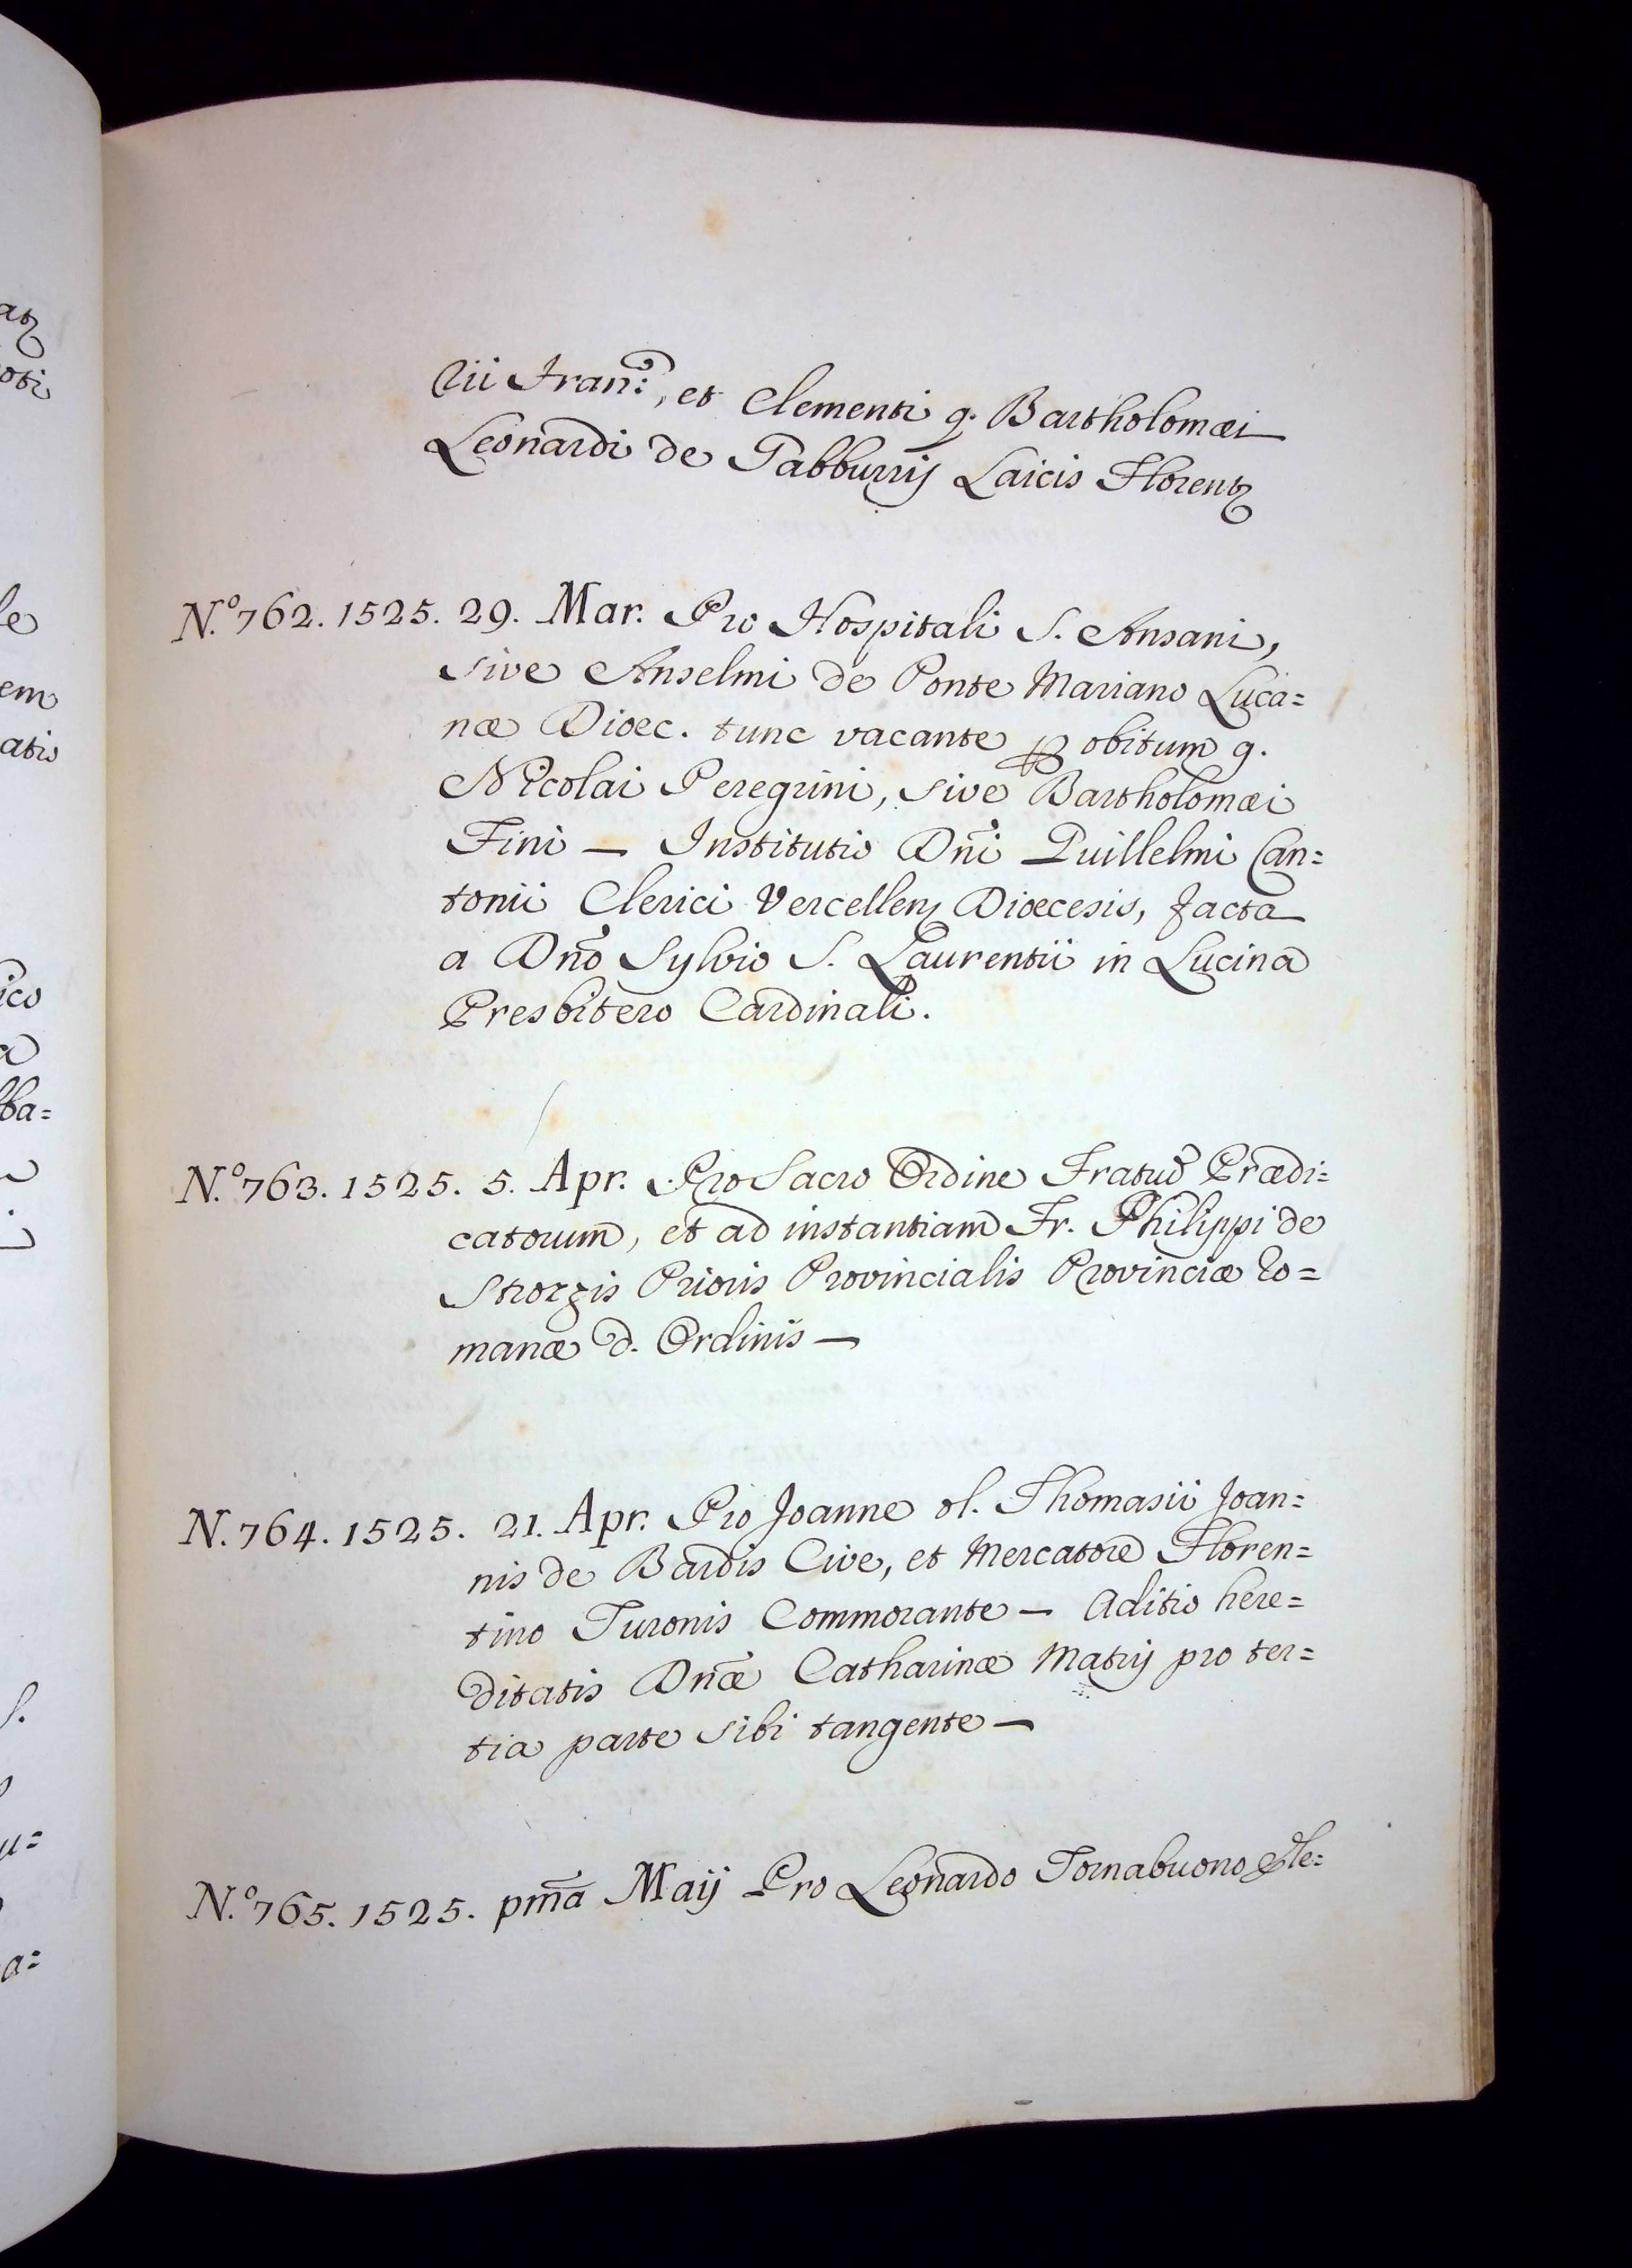 Nii Fran:, et Clementi q. Bartholomæi
Leonardi de Gabburrij Laicis Florent
N.º 762. 1525. 29. Mar. Pro Hospitali S. Ansani,
sive Anselmi de Ponte Mariano Luca=
næ Dioec. tunc vacante p obitum q.
Nicolai Peregrini, sive Bartholomæi
Fini — Institutio Dñi Guillelmi Can=
tonii Clerici Vercellen Dioecesis, facta
a Dño Sylvio S. Laurentii in Lucina
Presbitero Cardinali.
N.º 763. 1525. 5. Apr. Pro Sacro Ordine Fratrũ Prædi=
catorum, et ad instantiam Fr. Philippi de
Strozzis Prioris Provincialis Provinciæ Ro=
manæ d. Ordinis —
N. 764. 1525. 21. Apr. Pro Joanne ol. Thomasii Joan=
nis de Bardis Cive, et Mercatore Floren=
tino Turonis Commorante — Aditio here=
ditatis Dñæ Catharinæ Matrij pro ter=
tia parte sibi tangente —
N.º 765. 1525. pm̃a Maij Pro Leonardo Tornabuono Ele=